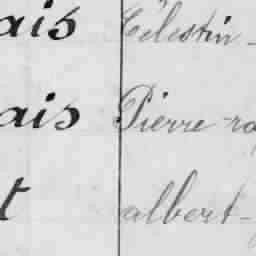 ais Célestin -
ais Pierre-ra
t albert-